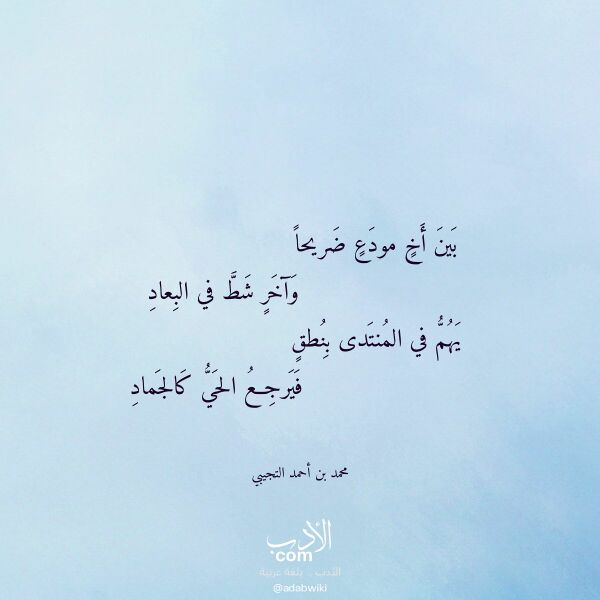 بَينَ أَخٍ مودَعٍ ضَريحاً
وَآخَرٍ شَطَّ في البِعادِ
يَهُمُّ في المُنتَدى بِنُطقٍ
فَيَرجِعُ الحَيُّ كَالجَمادِ
محمد بن أحمد التجيبي
الأدب
com
الأدب .. بلغة عربية
@adabwiki